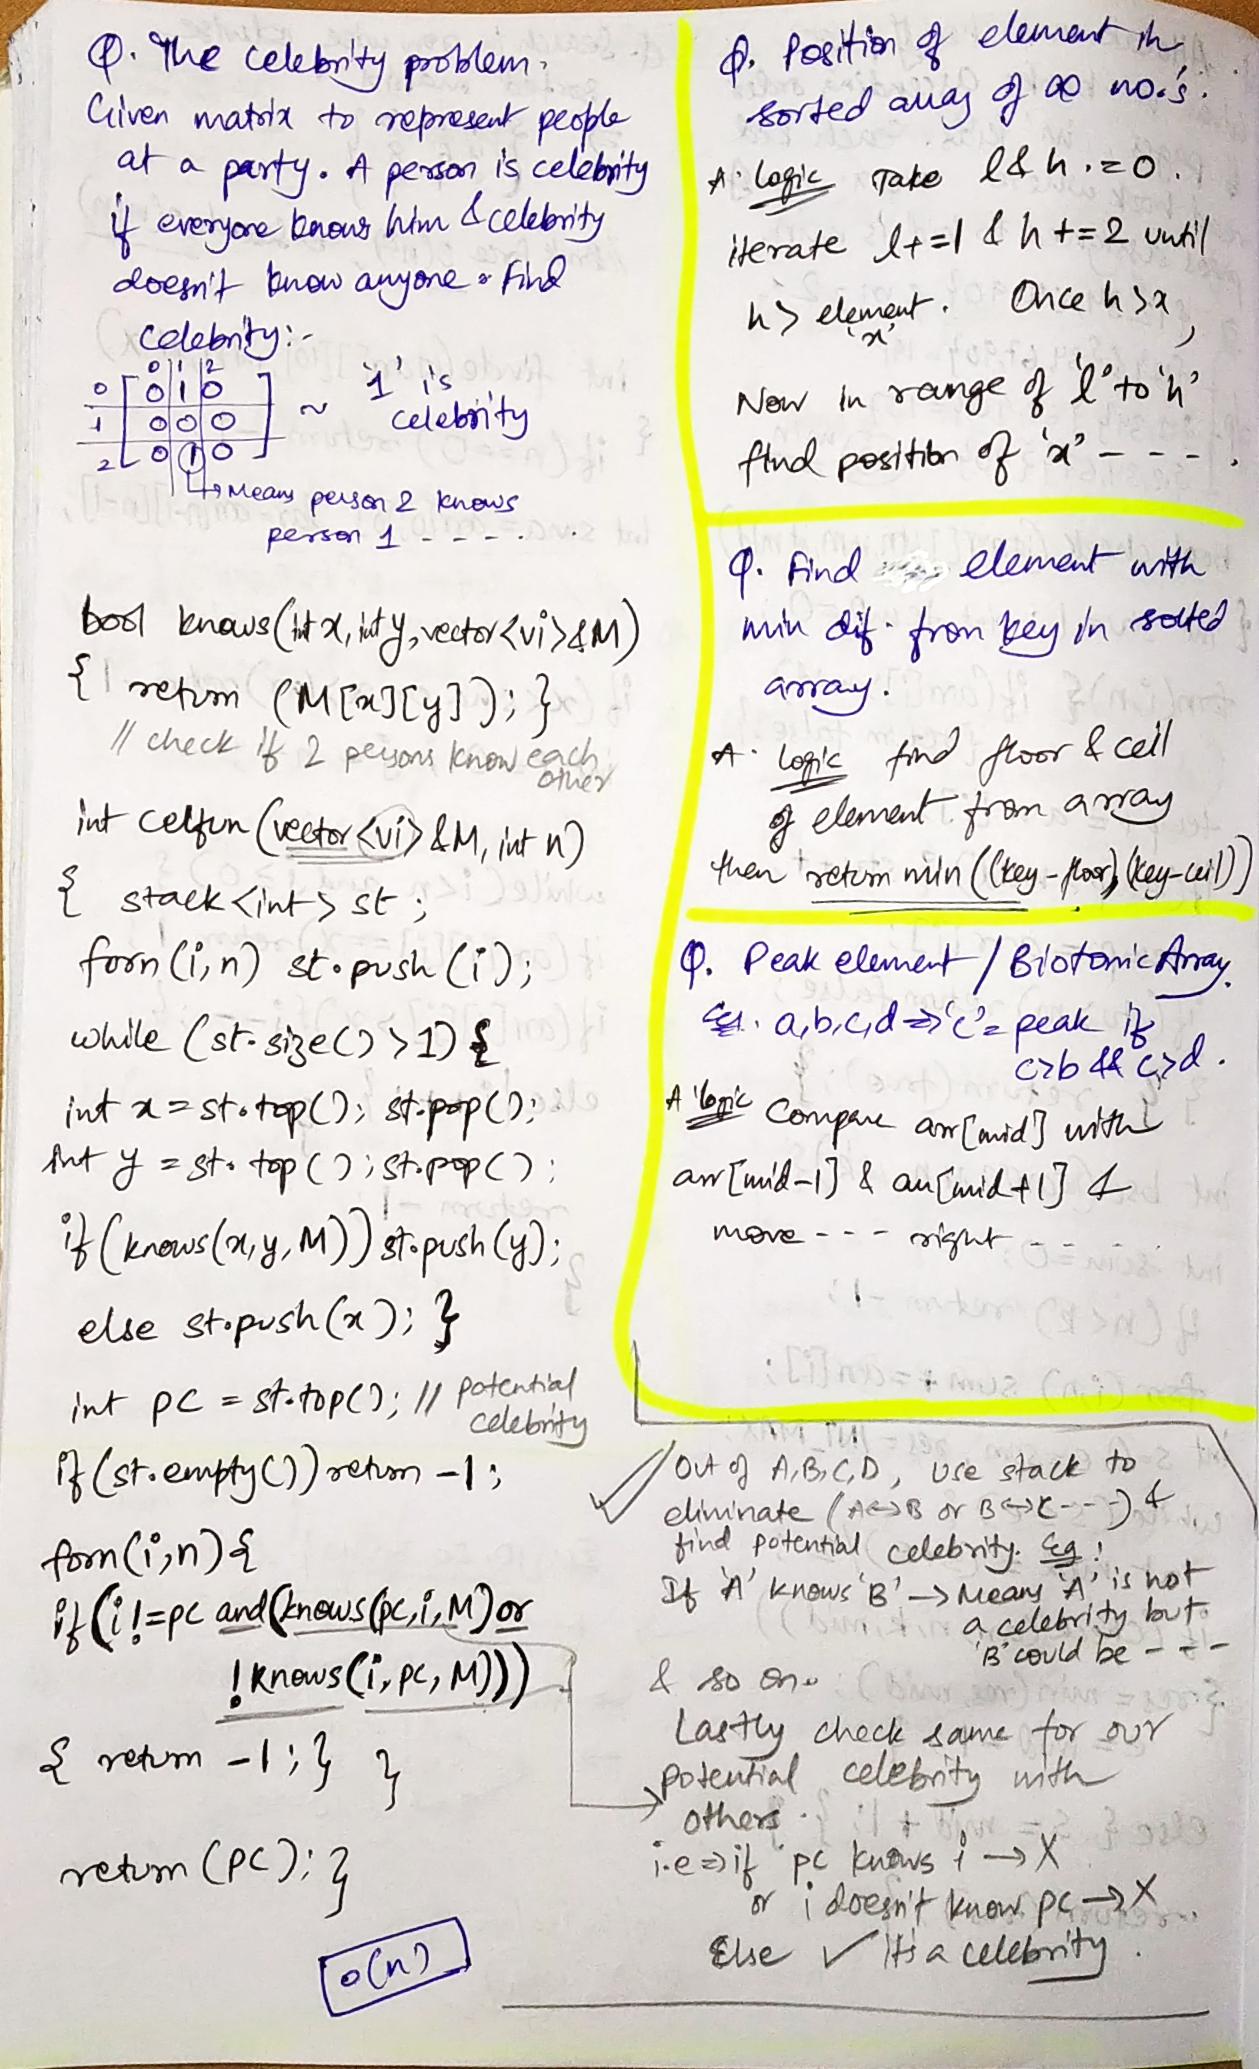 Q. The celebrity problem.
Given matrix to represent people
at a party. A person is celebrity
if everyone knows him & celebrity
doesn't know anyone. Find
celebrity:-
0 1 2
0 [ 0 1 0 ]
1 0 0 0
2 0 1 0
~ '1' is
celebrity
Means person 2 knows
person 1 - - - -
bool knows(int x, int y, vector<vi>&M)
{ return (M[x][y]); }
// check if 2 persons know each
other
int celfun(vector<vi>&M, int n)
{ stack<int> st;
forn(i,n) st.push(i);
while (st.size()>1){
int x = st.top(); st.pop();
int y = st.top(); st.pop();
if(knows(x,y,M)) st.push(y);
else st.push(x); }
int pc = st.top(); // potential
celebrity
if(st.empty()) return -1;
forn(i,n){
if(i!=pc and(knows(pc,i,M) or
!knows(i,pc,M)))
{ return -1;} }
return (pc); }
o(n)
Q. Position of element in
sorted array of ∞ no.s.
A. Logic Take l & h = 0.
iterate l+=1 & h+=2 until
h> element. Once h>x,
'x'
Now in range of 'l' to 'h'
find position of 'x' - - - .
Q. Find element with
min dif. from key in sorted
array.
A. Logic find floor & ceil
of element from array
then return min((key-floor),(key-ceil))
Q. Peak element / Biotomic Array.
Eg. a,b,c,d => 'c' = peak if
c>b && c>d.
A. logic Compare arr[mid] with
arr[mid-1] & arr[mid+1] &
move - - - right - - - .
Out of A,B,C,D, use stack to
eliminate (A↔B or B↔C---) &
find potential celebrity. Eg:
If 'A' knows 'B' → Means 'A' is not
a celebrity but
'B' could be - - -
& so on.
Lastly check same for our
potential celebrity with
others.
i.e => if pc knows i → X
or i doesn't know pc → X
Else ✓ It's a celebrity.